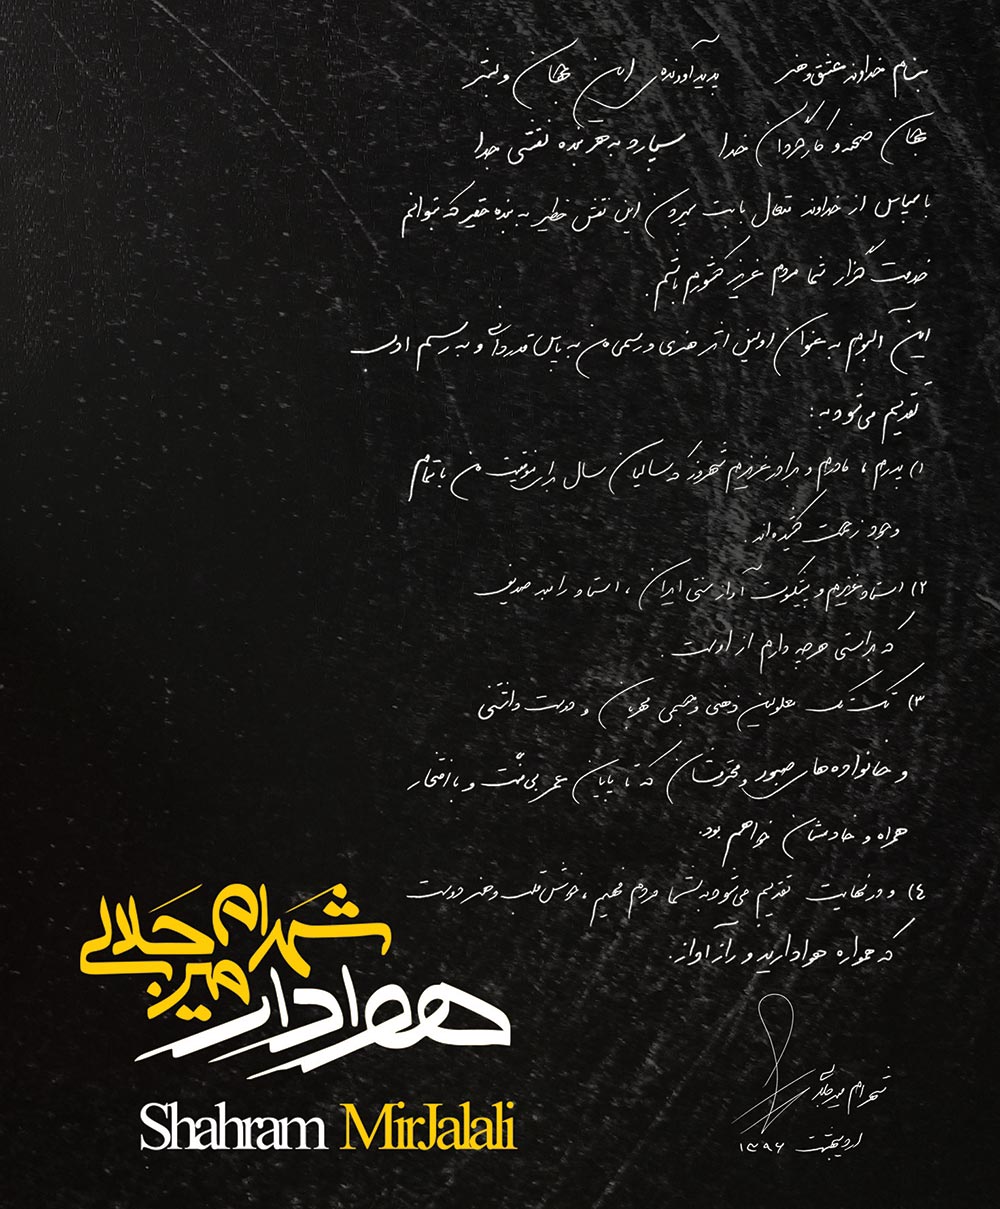 بنام خداوند عشق و هنر پدید آورنده‌ی این جهان و بشر
جهان صحنه و کارگردان خدا سپارد به هر بنده نقشی جدا
با سپاس از خداوند متعال بابت سپردن این نقش خطیر به بنده حقیر که بتوانم
خدمت گزار شما مردم عزیز کشورم باشم.
این آلبوم به عنوان اولین اثر هنری و رسمی من به پاس قدردانی و به رسم ادب
تقدیم می‌شود به:
۱) پدرم ، مادرم و برادر عزیزم شهروز که سالیان سال برای موفقیت من با تمام
وجود زحمت کشیده‌اند.
۲) استاد عزیزم و پیشکسوت آواز سنتی ایران ، استاد
که براستی هرچه دارم از اوست.
۳) تک تک معلولین ذهنی و جسمی مهربان و دوست داشتنی
و خانواده‌های صبور و محترمشان که تا پایان عمر بی‌منت و با افتخار
همراه و خادمشان خواهم بود.
٤) و در نهایت تقدیم می‌شود به شما مردم فهیم ، خوش قلب و هنر دوست
که همواره هوادارید و راز آواز.
شهرام میرجلالی
اردیبهشت ۱۳۹۶
شهرام
میرجلالی
هوادار
Shahram MirJalali